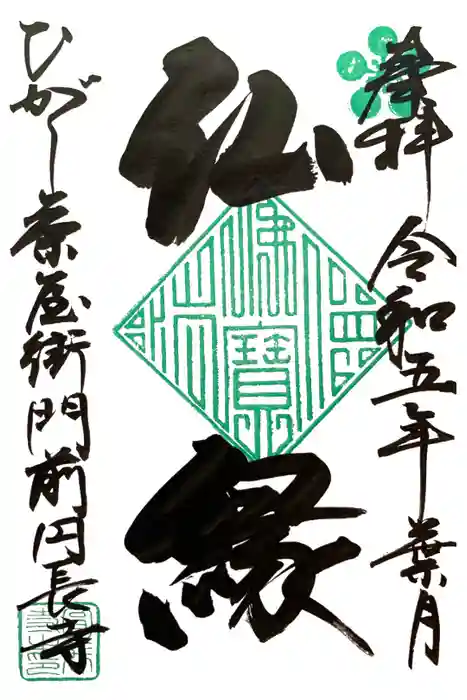 奉拝 令和五年葉月
仏縁
佛寶
ひがし茶屋街門前円長寺